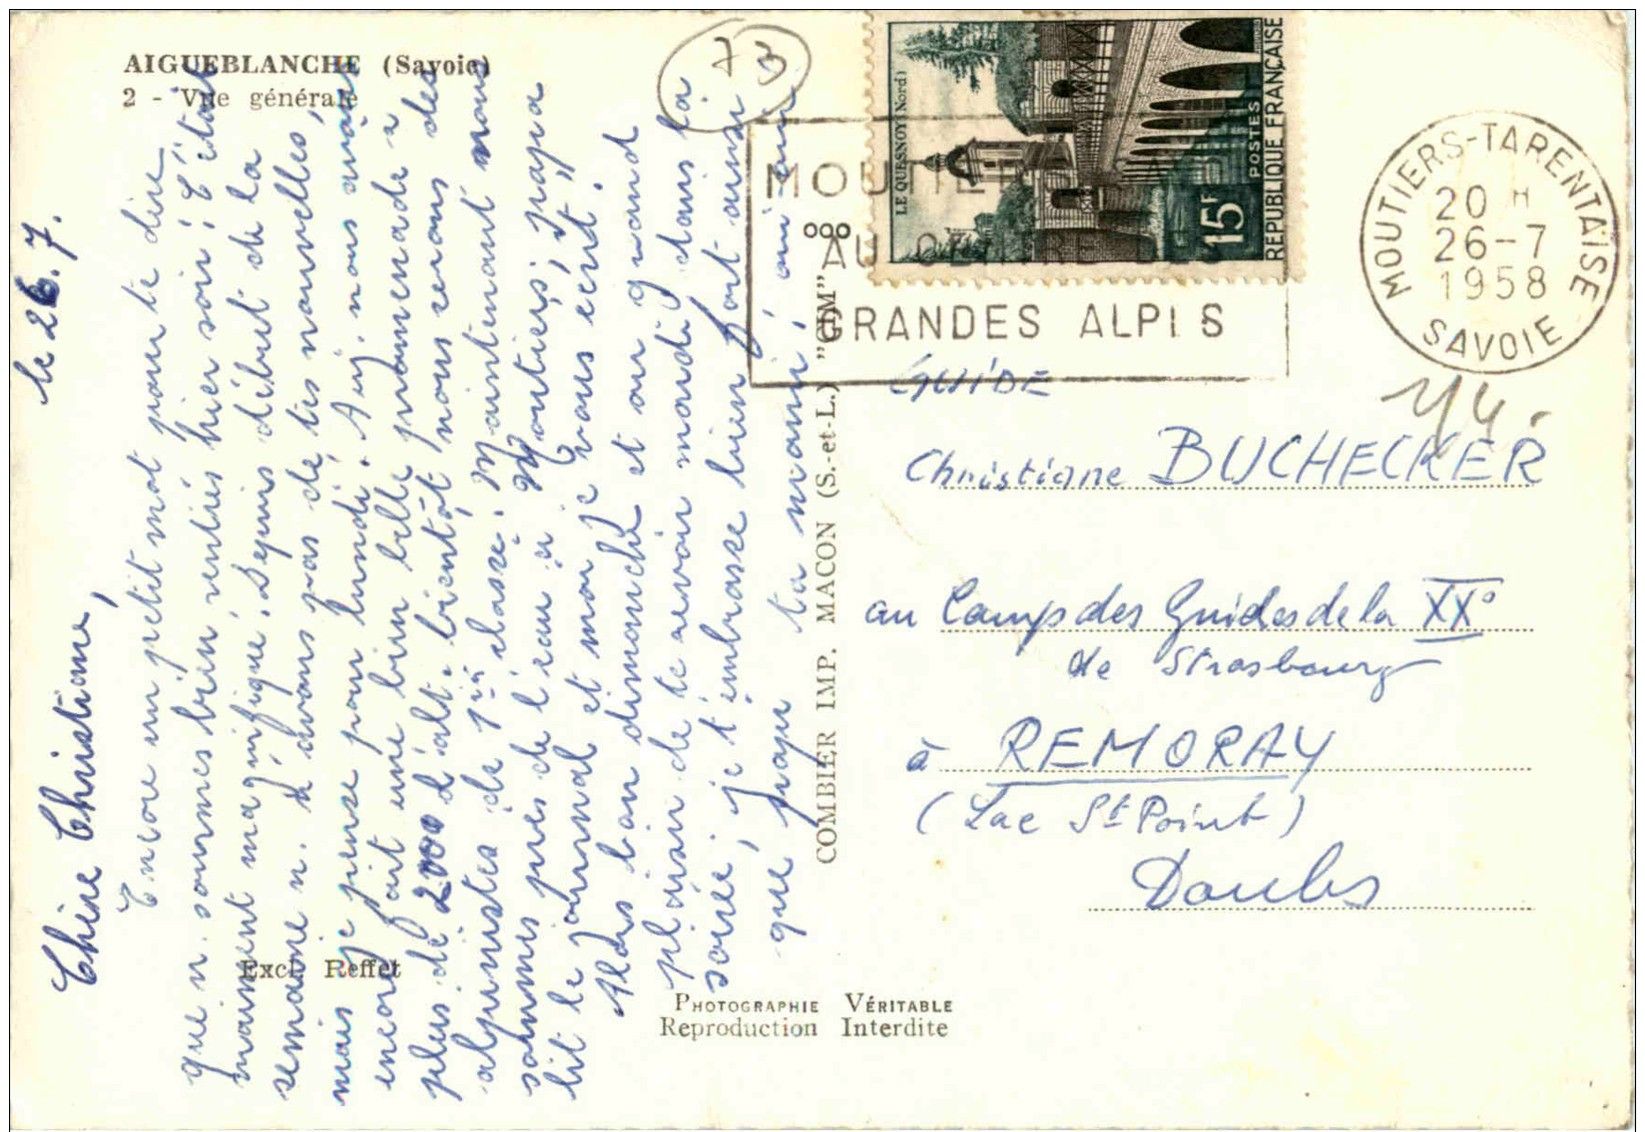 AIGUEBLANCHE (Savoie)
2 - Vue générale
73
le 26.7.
Chère Christiane,
Encore un petit mot pour te dire
que n. sommes bien rentrés hier soir; c'était
vraiment magnifique. Depuis début de la
semaine n. n'avons pas de tes nouvelles,
mais je pense pour lundi. Auj. nous avons
encore fait une bien belle promenade à
plus de 2000 d'alt. bientôt nous serons des
alpinistes de 1ère classe. Maintenant nous
sommes près de l'eau à Moutiers; papa
lit le journal et moi je vous écrit".
Alors bon dimanche et au grand
plaisir de te revoir mardi dans la
soirée, je t'embrasse bien fort ainsi
que papa ta mami,
Excl. Reffet
COMBIER IMP. MACON (S.-et-L.) "CIM"
PHOTOGRAPHIE VÉRITABLE
Reproduction Interdite
LE QUESNOY (Nord)
15F
POSTES
REPUBLIQUE FRANÇAISE
MOUTIER
AU CENTRE DE
GRANDES ALPES
MOUTIERS-TARENTAISE
20 H
26-7
1958
SAVOIE
GUIDE
Christiane BUCHECKER
au Camp des Guides de la XX°
de Strasbourg
à REMORAY
(Lac St Point)
Doubs